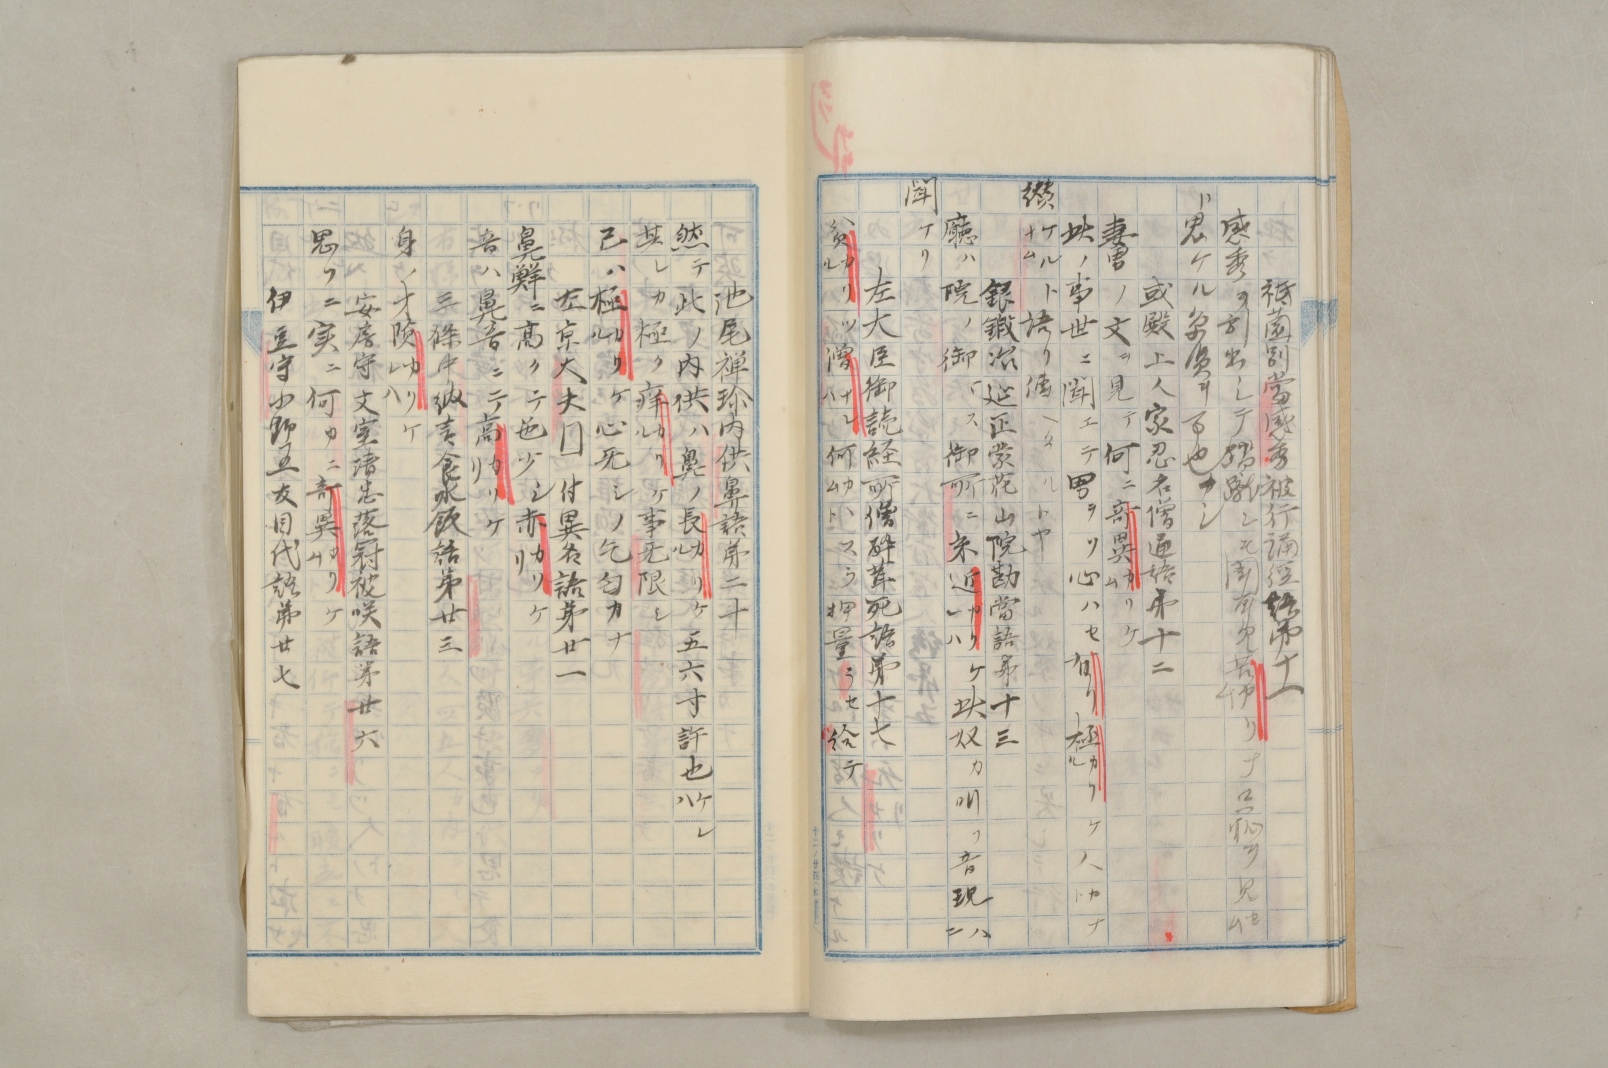 祇園別当感秀被行誦経語第十一
感秀ヲ引出シテ
ト思ケル
或殿上人家忍名僧通語第十二
妻男ノ文ヲ見テ何ニ奇異カリケム
此ノ事世ニ聞エテ男ヲリ心ハセ有リ極カリケル人ナ
ケルト語リ傳ヘタルトヤ
銀鍛治延正蒙花山院勘當語第十三
廳ハ院ノ御マス御所ニ糸近カリケレハ此奴カ叫フ音現ハニ
聞ケリ
左大臣御読経所僧酔茸死語第十七
貧カリツル僧ナレハ何カハスラムト押量ラセ給テ
池尾禅珍内供鼻語第二十
然テ此ノ内供ハ鼻ノ長カリケル五六寸許也ケレハ
其レカ極ク痒カリケル事无限シ
己ハ極カリケル心无シノ乞匃カナ
左京大夫□付異名語第廿一
鼻鮮ニ高クテ色少シ赤カリケリ
音ハ鼻音ニテ高カリケリ
三條中納言食水飯語第廿三
身ノ才賢カリケハ
安房守文室清忠落冠被咲語第廿六
思フニ実ニ何カニ奇異カリケム
伊豆守小野五友目代語第廿七